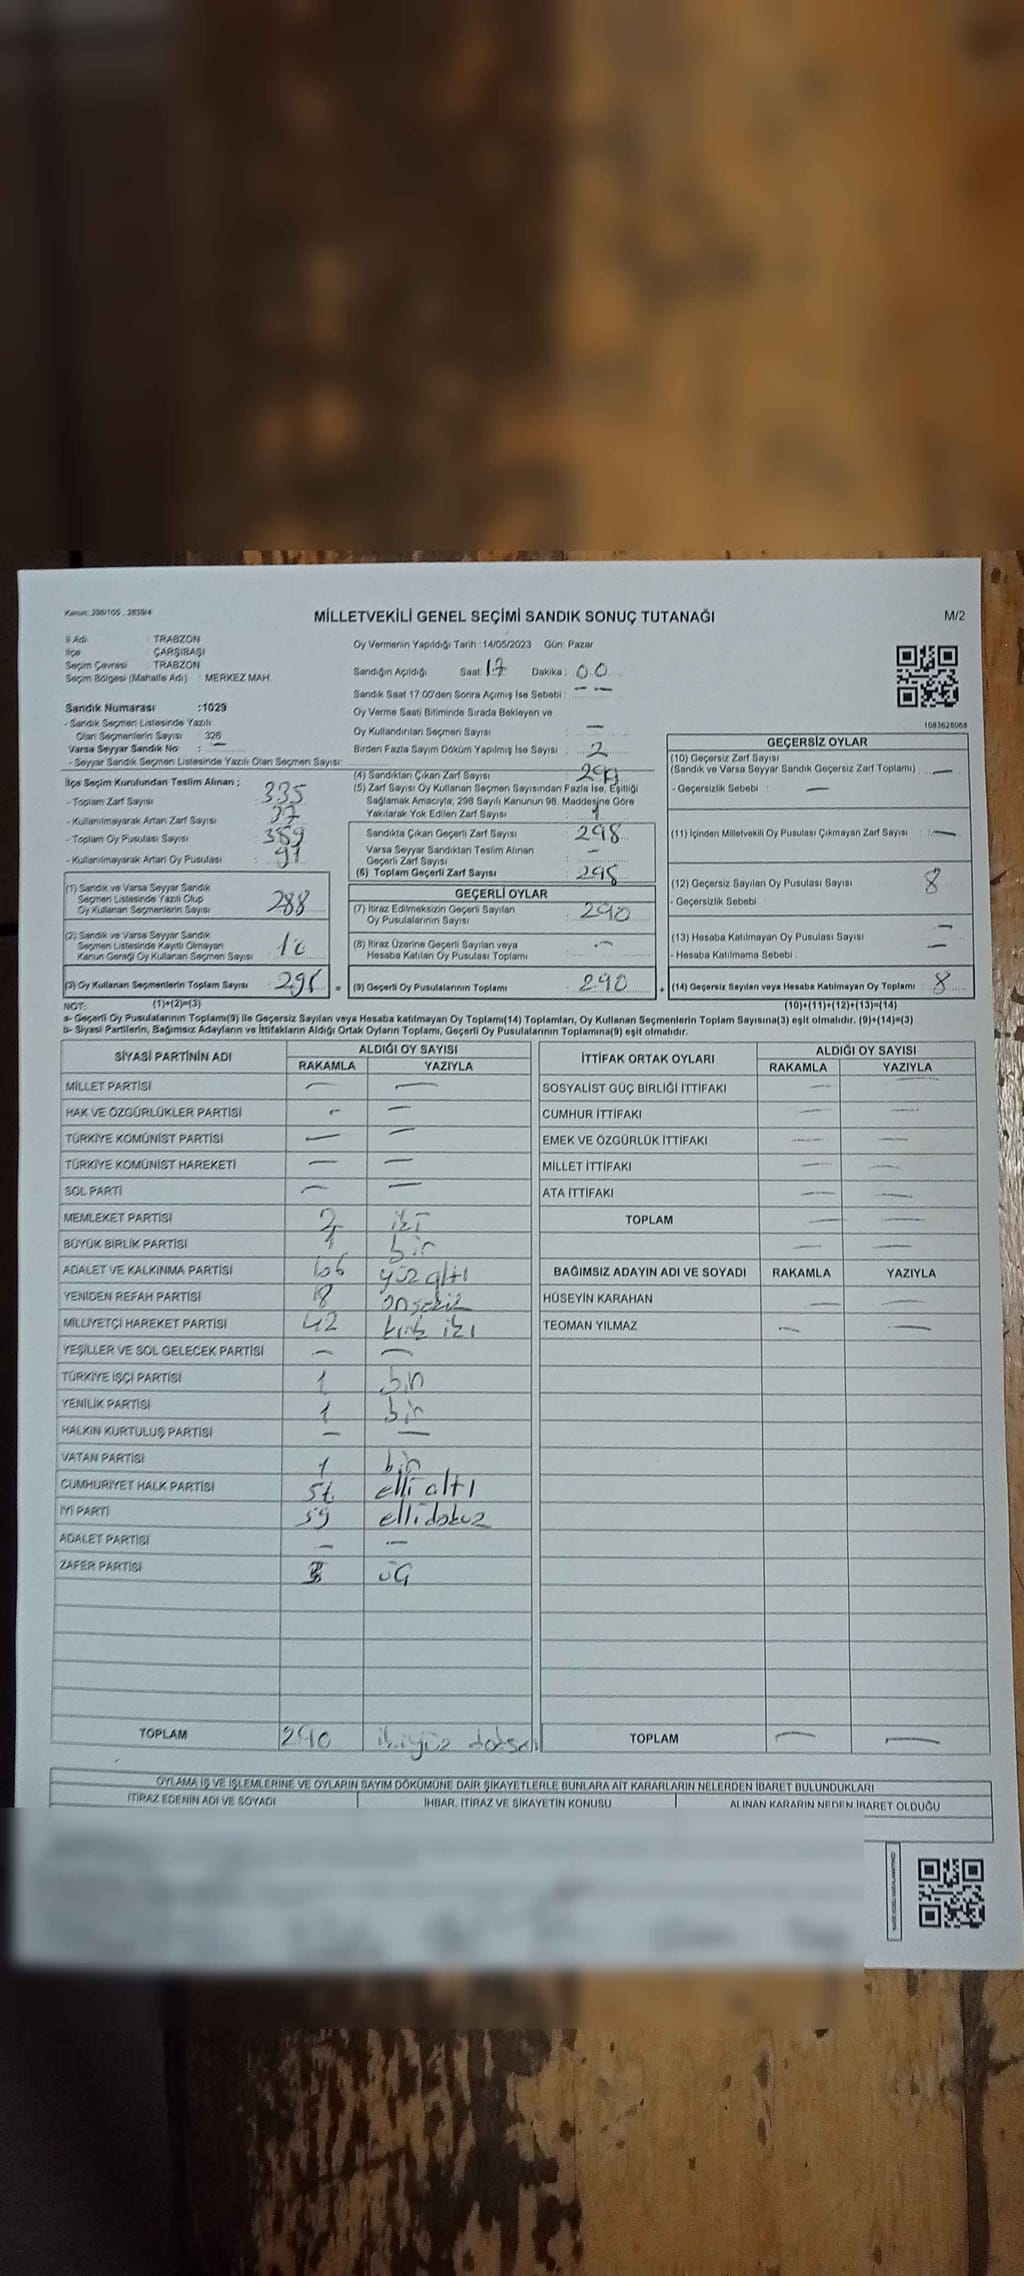 Kanun: 298/105 , 2839/4
MİLLETVEKİLİ GENEL SEÇİMİ SANDIK SONUÇ TUTANAĞI
M/2
İl Adı : TRABZON
İlçe : ÇARŞIBAŞI
Seçim Çevresi : TRABZON
Seçim Bölgesi (Mahalle Adı) : MERKEZ MAH.
Sandık Numarası :1029
- Sandık Seçmen Listesinde Yazılı
Olan Seçmenlerin Sayısı 326
Varsa Seyyar Sandık No : —
- Seyyar Sandık Seçmen Listesinde Yazılı Olan Seçmen Sayısı:
Oy Vermenin Yapıldığı Tarih : 14/05/2023 Gün: Pazar
Sandığın Açıldığı Saat: 17 Dakika : 00
Sandık Saat 17:00'den Sonra Açımış İse Sebebi : — —
Oy Verme Saati Bitiminde Sırada Bekleyen ve
Oy Kullandırılan Seçmen Sayısı : —
Birden Fazla Sayım Döküm Yapılmış İse Sayısı : 2
1083628068
İlçe Seçim Kurulundan Teslim Alınan ;
- Toplam Zarf Sayısı : 335
- Kullanılmayarak Artan Zarf Sayısı : 37
- Toplam Oy Pusulası Sayısı : 389
- Kullanılmayarak Artan Oy Pusulası : 91
(1) Sandık ve Varsa Seyyar Sandık
Seçmen Listesinde Yazılı Olup
Oy Kullanan Seçmenlerin Sayısı : 288
(2) Sandık ve Varsa Seyyar Sandık
Seçmen Listesinde Kayıtlı Olmayan
Kanun Gereği Oy Kullanan Seçmen Sayısı 10
(3) Oy Kullanan Seçmenlerin Toplam Sayısı : 298 =
(4) Sandıktan Çıkan Zarf Sayısı : 299
(5) Zarf Sayısı Oy Kullanan Seçmen Sayısından Fazla İse, Eşitliği
Sağlamak Amacıyla; 298 Sayılı Kanunun 98. Maddesine Göre
Yakılarak Yok Edilen Zarf Sayısı : 1
Sandıkta Çıkan Geçerli Zarf Sayısı : 298
Varsa Seyyar Sandıktan Teslim Alınan
Geçerli Zarf Sayısı : —
(6) Toplam Geçerli Zarf Sayısı : 298
GEÇERLİ OYLAR
(7) İtiraz Edilmeksizin Geçerli Sayılan
Oy Pusulalarının Sayısı : 290
(8) İtiraz Üzerine Geçerli Sayılan veya
Hesaba Katılan Oy Pusulası Toplamı : —
(9) Geçerli Oy Pusulalarının Toplamı : 290 +
GEÇERSİZ OYLAR
(10) Geçersiz Zarf Sayısı
(Sandık ve Varsa Seyyar Sandık Geçersiz Zarf Toplamı) : —
- Geçersizlik Sebebi : —
(11) İçinden Milletvekili Oy Pusulası Çıkmayan Zarf Sayısı : —
(12) Geçersiz Sayılan Oy Pusulası Sayısı : 8
- Geçersizlik Sebebi :
(13) Hesaba Katılmayan Oy Pusulası Sayısı : —
- Hesaba Katılmama Sebebi : —
(14) Geçersiz Sayılan veya Hesaba Katılmayan Oy Toplamı : 8
NOT: (1)+(2)=(3)
(10)+(11)+(12)+(13)=(14)
a- Geçerli Oy Pusulalarının Toplamı(9) ile Geçersiz Sayılan veya Hesaba katılmayan Oy Toplamı(14) Toplamları, Oy Kullanan Seçmenlerin Toplam Sayısına(3) eşit olmalıdır. (9)+(14)=(3)
b- Siyasi Partilerin, Bağımsız Adayların ve İttifakların Aldığı Ortak Oyların Toplamı, Geçerli Oy Pusulalarının Toplamına(9) eşit olmalıdır.
SİYASİ PARTİNİN ADI ALDIĞI OY SAYISI
RAKAMLA YAZIYLA
MİLLET PARTİSİ — —
HAK VE ÖZGÜRLÜKLER PARTİSİ — —
TÜRKİYE KOMÜNİST PARTİSİ — —
TÜRKİYE KOMÜNİST HAREKETİ — —
SOL PARTİ — —
MEMLEKET PARTİSİ 2 iki
BÜYÜK BİRLİK PARTİSİ 1 bir
ADALET VE KALKINMA PARTİSİ 106 yüz altı
YENİDEN REFAH PARTİSİ 18 onsekiz
MİLLİYETÇİ HAREKET PARTİSİ 42 kırk iki
YEŞİLLER VE SOL GELECEK PARTİSİ — —
TÜRKİYE İŞÇİ PARTİSİ 1 bir
YENİLİK PARTİSİ 1 bir
HALKIN KURTULUŞ PARTİSİ — —
VATAN PARTİSİ 1 bir
CUMHURİYET HALK PARTİSİ 56 elli altı
İYİ PARTİ 59 ellidokuz
ADALET PARTİSİ — —
ZAFER PARTİSİ 3 üç
TOPLAM 290 ikiyüz doksan
İTTİFAK ORTAK OYLARI ALDIĞI OY SAYISI
RAKAMLA YAZIYLA
SOSYALİST GÜÇ BİRLİĞİ İTTİFAKI — —
CUMHUR İTTİFAKI — —
EMEK VE ÖZGÜRLÜK İTTİFAKI — —
MİLLET İTTİFAKI — —
ATA İTTİFAKI — —
TOPLAM — —
— —
BAĞIMSIZ ADAYIN ADI VE SOYADI RAKAMLA YAZIYLA
HÜSEYİN KARAHAN — —
TEOMAN YILMAZ — —
TOPLAM — —
OYLAMA İŞ VE İŞLEMLERİNE VE OYLARIN SAYIM DÖKÜMÜNE DAİR ŞİKAYETLERLE BUNLARA AİT KARARLARIN NELERDEN İBARET BULUNDUKLARI
İTİRAZ EDENİN ADI VE SOYADI İHBAR, İTİRAZ VE ŞİKAYETİN KONUSU ALINAN KARARIN NEDEN İBARET OLDUĞU